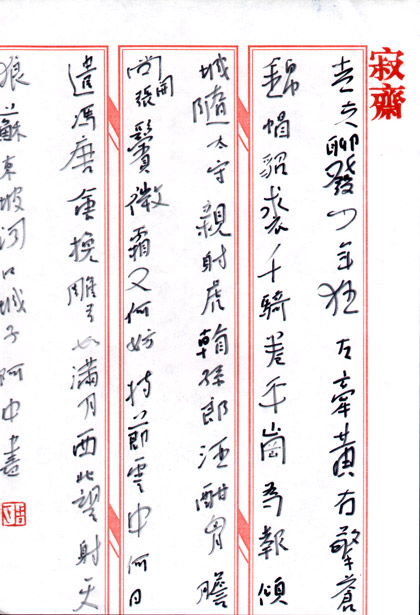 寂齋
老夫聊發少年狂左牽黃右擎蒼
錦帽貂裘千騎卷平崗為報傾
城隨太守親射虎看孫郎酒酣胷膽
尚開張鬢微霜又何妨持節雲中何日
遣馮唐會挽雕弓如滿月西北望射天
狼 蘇東坡詞江城子阿中書